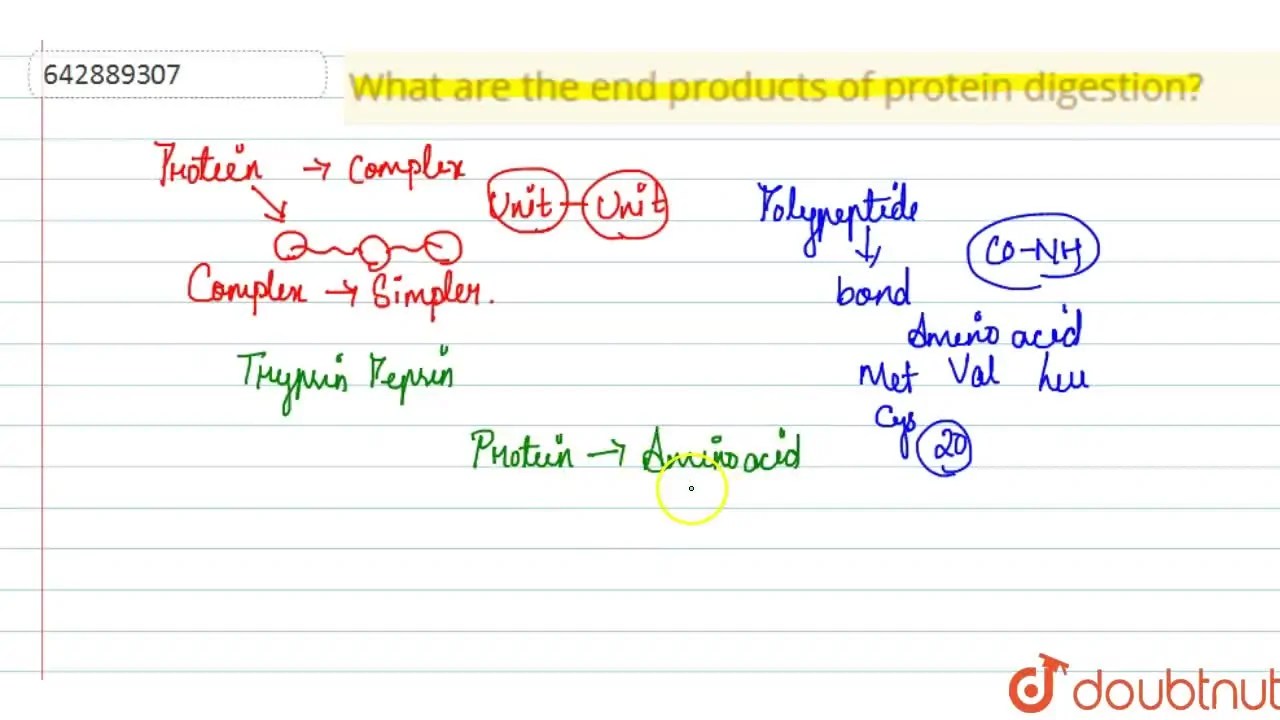 642889307
What are the end products of protein digestion?
Protein → Complex
Unit - Unit
Complex → Simpler.
Trypsin Pepsin
Protein → Amino acid
Polypeptide
↓
bond
CO-NH
Amino acid
Met Val Leu
Cys 20
doubtnut